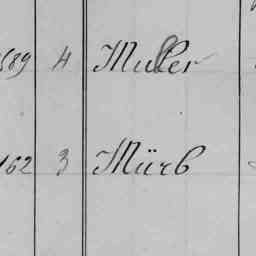 589 4 Muller
162 3 Mürb